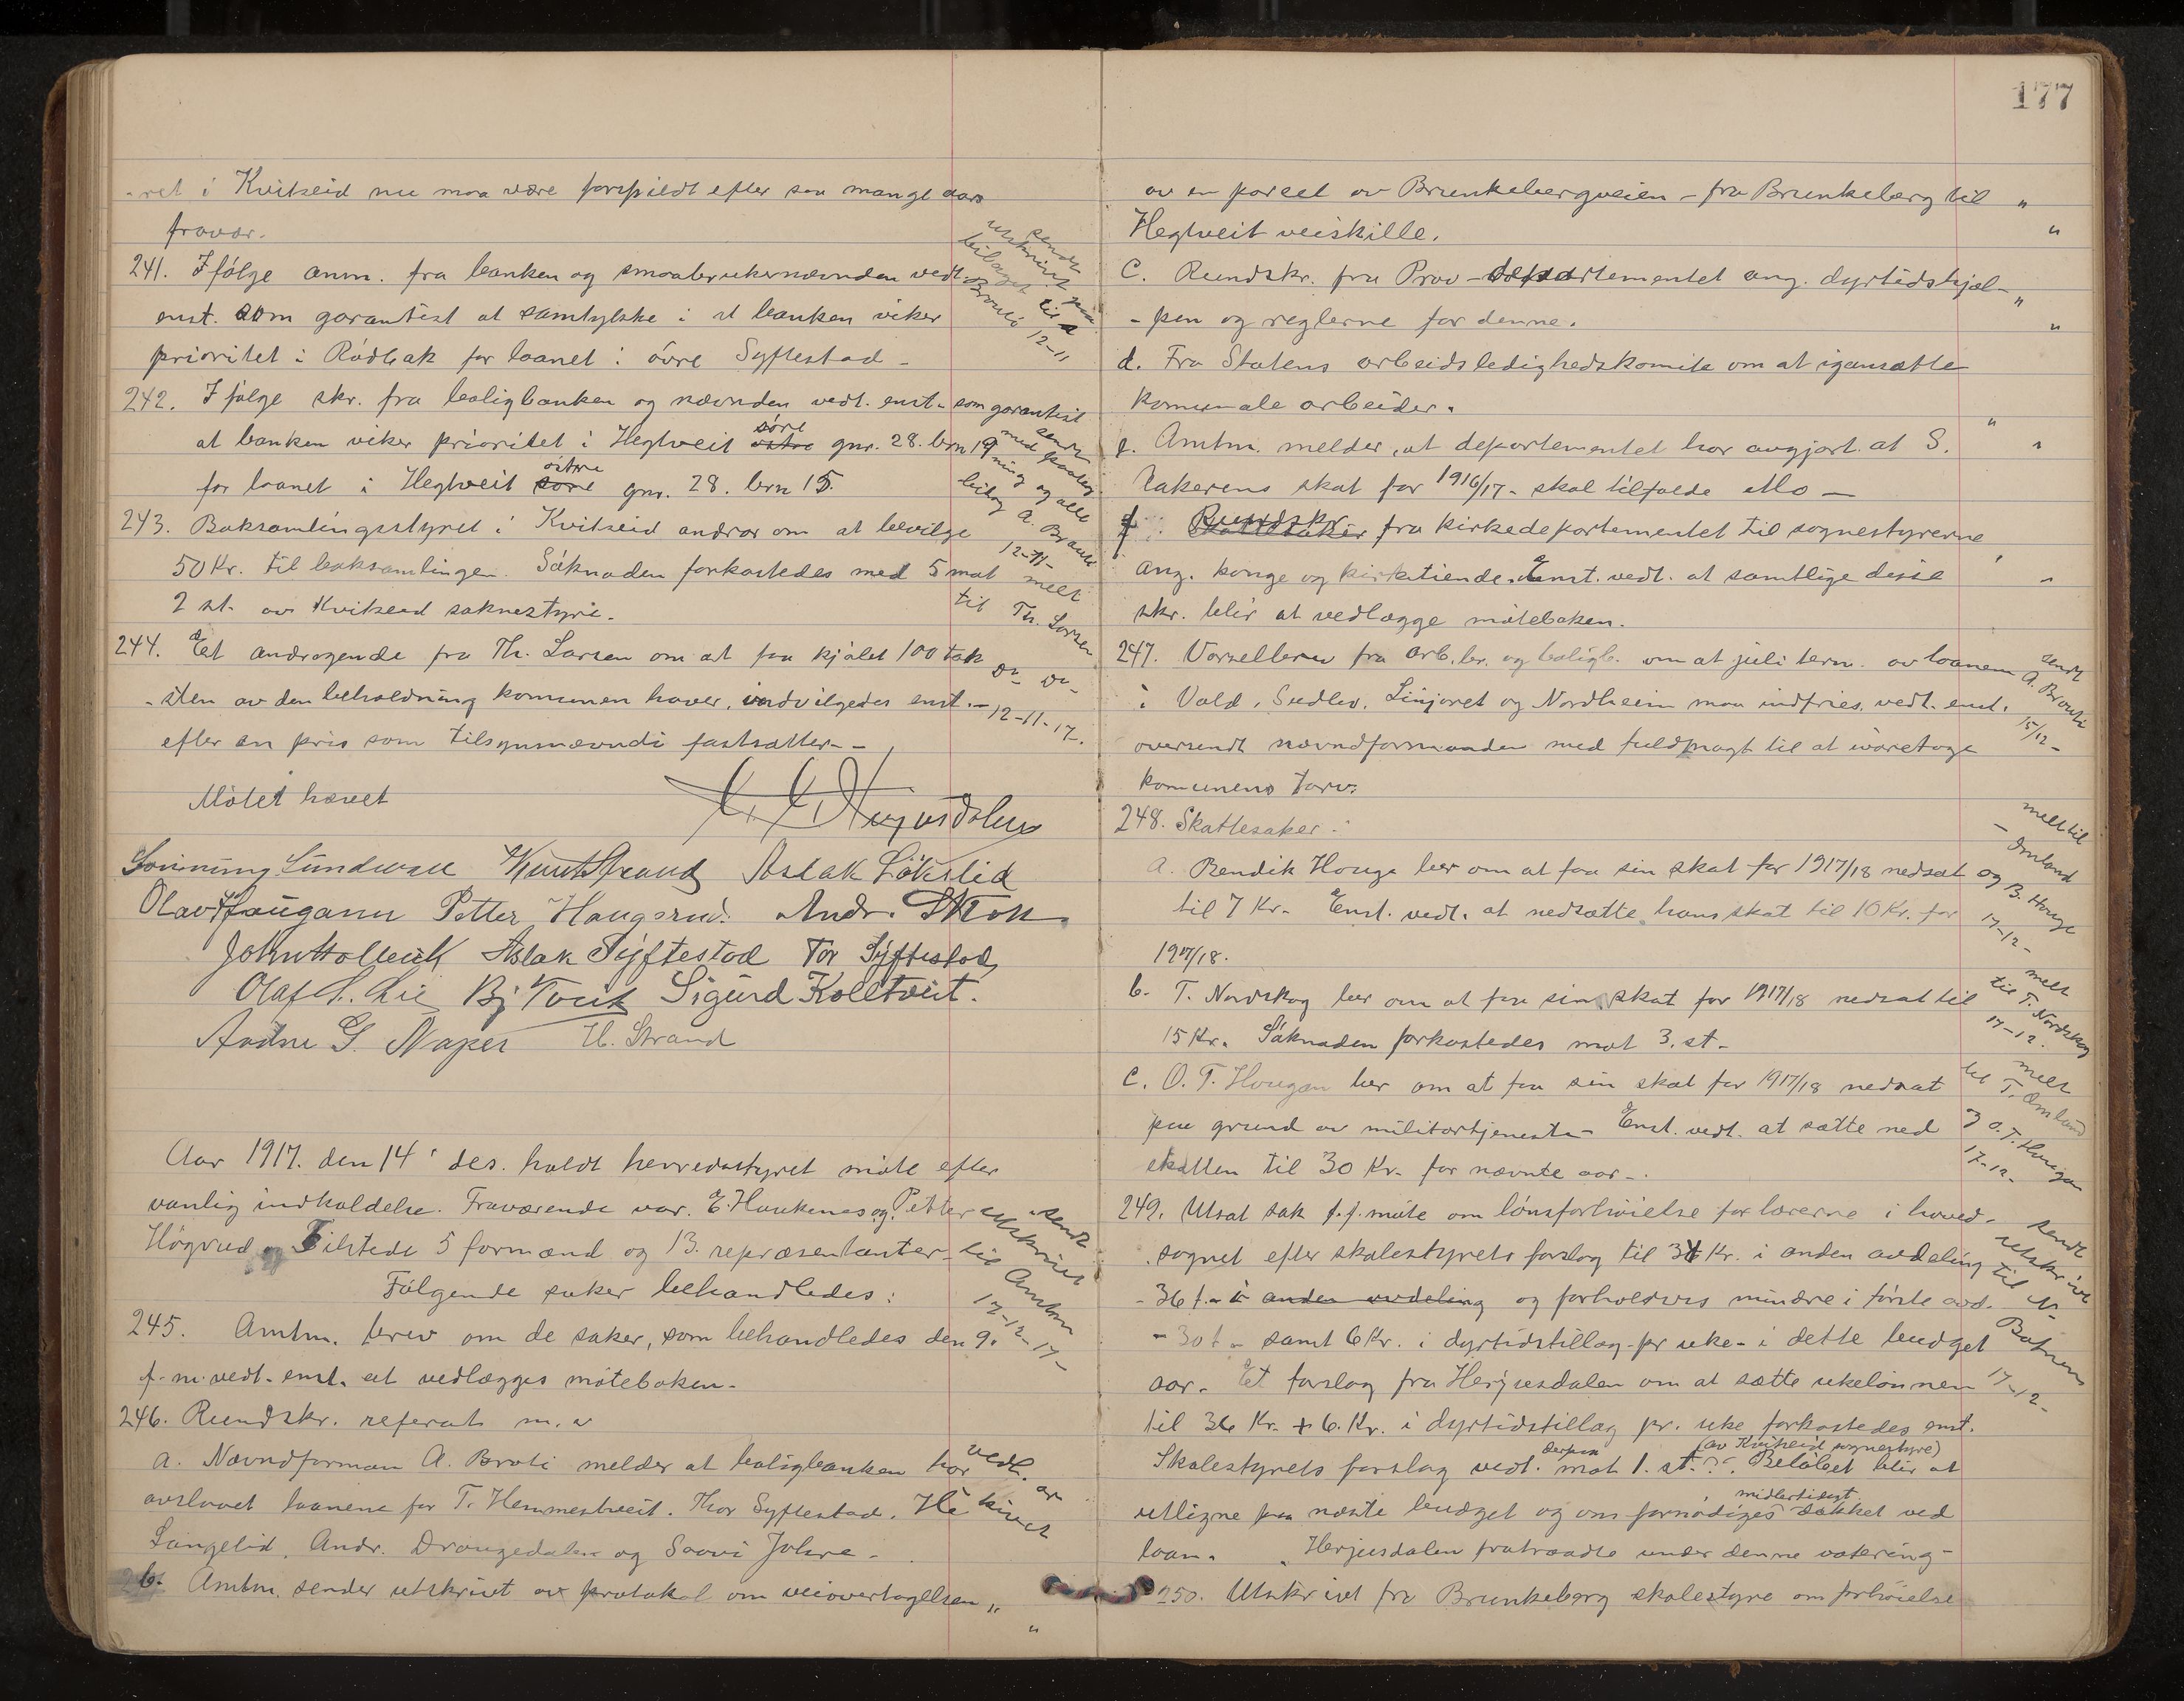 -ret i Kvitseid nu maa være forspildt efter saa mange aars
fravær.
241. Ifølge anm. fra banken og smaabrukernævnden vedt.
enst. som garantist at samtykke i at banken viker
prioritet i Rødbak for laanet i øvre Syftestad -
sendt
utskrivt
bilaget til
Brauti 12-11
242. Ifølge skr. fra boligbanken og nævnden vedt. enst. som garantist
at banken viker prioritet i Hegtveit søre østre gnr. 28. brn 19
for laanet i Hegtveit østre søre gnr. 28. brn 15.
sendt
med paateg
ning og alle
bilag A. Brauti
12-11-
243. Boksamlingsstyret i Kvitseid andrar om at bevilge
50 Kr. til boksamlingen. Søknaden forkastedes med 5 mot
2 st. av Kvitseid soknestyre.
melt
til Th. Larsen
244. Et andragende fra Th. Larsen om at faa kjøbt 100 tak
-sten av den beholdning komunen haver, indvilgedes enst. -
efter en pris som tilsynsnævndi fastsætter -
12-11-17.
Møtet hævet
Sønnung Sundvall Knut Strand Aslak Lökslid
Olav Haugann Petter Haugerud. Andr. Moen
John Holtvik Aslak Syftestad Tor Syftestad
Olaf S. Lie Bj Tveit Sigurd Kolltveit.
Andne G. Naper H. Strand
Aar 1917. den 14 des. holdt herredsstyret møte efter
vanlig indkaldelse. Fraværende var. E. Haukenes og Petter
Høgrud og Tilstede 5 formænd og 13. repræsentanter -
Følgende saker behandledes:
sendt
utskrivt
til Amtm
17-12-17-
245. Amtm. brev om de saker, som behandledes den 9.
f.m. vedt. enst. at vedlægges møteboken.
246. Rundskr. referat m. v
a. Nævndforman A. Brati melder at boligbanken har
avslaaet laanene for T. Hemmestveit. Thor Syftestad. He
Langelid, Andr. Drangedalen og Saavi Johre -
b. Amtm. sender utskrivt av protokol om veiovertagelsen „
„
177
av en parcel av Brunkebergveien - fra Brunkeberg til „
Hegtveit veiskille. „
c. Rundskr. fra Prov-departementet ang. dyrtidshjæl- „
- pen og reglerne for denne. „
d. Fra Statens arbeidsledighedskomite om at igansætte
komunale arbeider. „
e. Amtm. melder, at departementet har avgjort at S.
Aakerens skat for 1916/17 - skal tilfalde Mo -
f. Rundskr. fra kirkedepartementet til sognestyrerne
ang. konge og kirketiende. Enst. vedt. at samtlige disse
skr. blir at vedlægge møteboken.
247. Varsellerne fra arb.br. og boligb. om at juli term. av laanem
i Vald, Sudlev, Linjoret og Nordheim maa indfries, vedt. enst.
oversendt nævndformanden med fuldmagt til at ivaretage
komunens tarv.
sendt
A. Brauti
15/12-
248. Skattesaker:
a. Bendik Houge ber om at faa sin skat for 1917/18 nedsat
til 7 Kr. Enst. vedt. at nedsætte hans skat til 10 Kr. for
1917/18.
melt til
Omland
og B. Houge
17-12-
b. T. Nordskog ber om at faa sin skat for 1917/18 nedsat til
15 Kr. Søknaden forkastedes mot 3. st -
melt
til T. Nordskog
17-12.
c. O. T. Hougan ber om at faa sin skat for 1917/18 nedsat
paa grund av militærtjeneste - Enst. vedt. at sætte ned
skatten til 30 Kr. for nævnte aar -
melt
til T. Omland
og O. T. Hougan
17-12.
249. Utsat sak f.f. møte om lønsforhøielse for lærerne i hoved-
sognet efter skolestyrets forslag til 36 Kr. i anden avdeling
- 36 f. - i anden avdeling og forholdsvis mindre i første avd.
- 30 f - samt 6 Kr. i dyrtidstillæg pr uke - i dette budget
aar. Et forslag fra Herjusdalen om at sætte ukelønnen
til 36 Kr. + 6. Kr. i dyrtidstillæg pr. uke forkastedes enst.
Skolestyrets forslag vedt. derpaa mot 1. st. (av Kviteseid sognestyre) Beløbet blir at
utligne paa næste budget og om fornødiges midlertidigt dækket ved
laan. „Herjusdalen fratraadte under denne votering -
sendt
utskrivt
til N.
Batnens
17-12-
250. Utskrivt fra Brunkeberg skolestyre om forhøielse